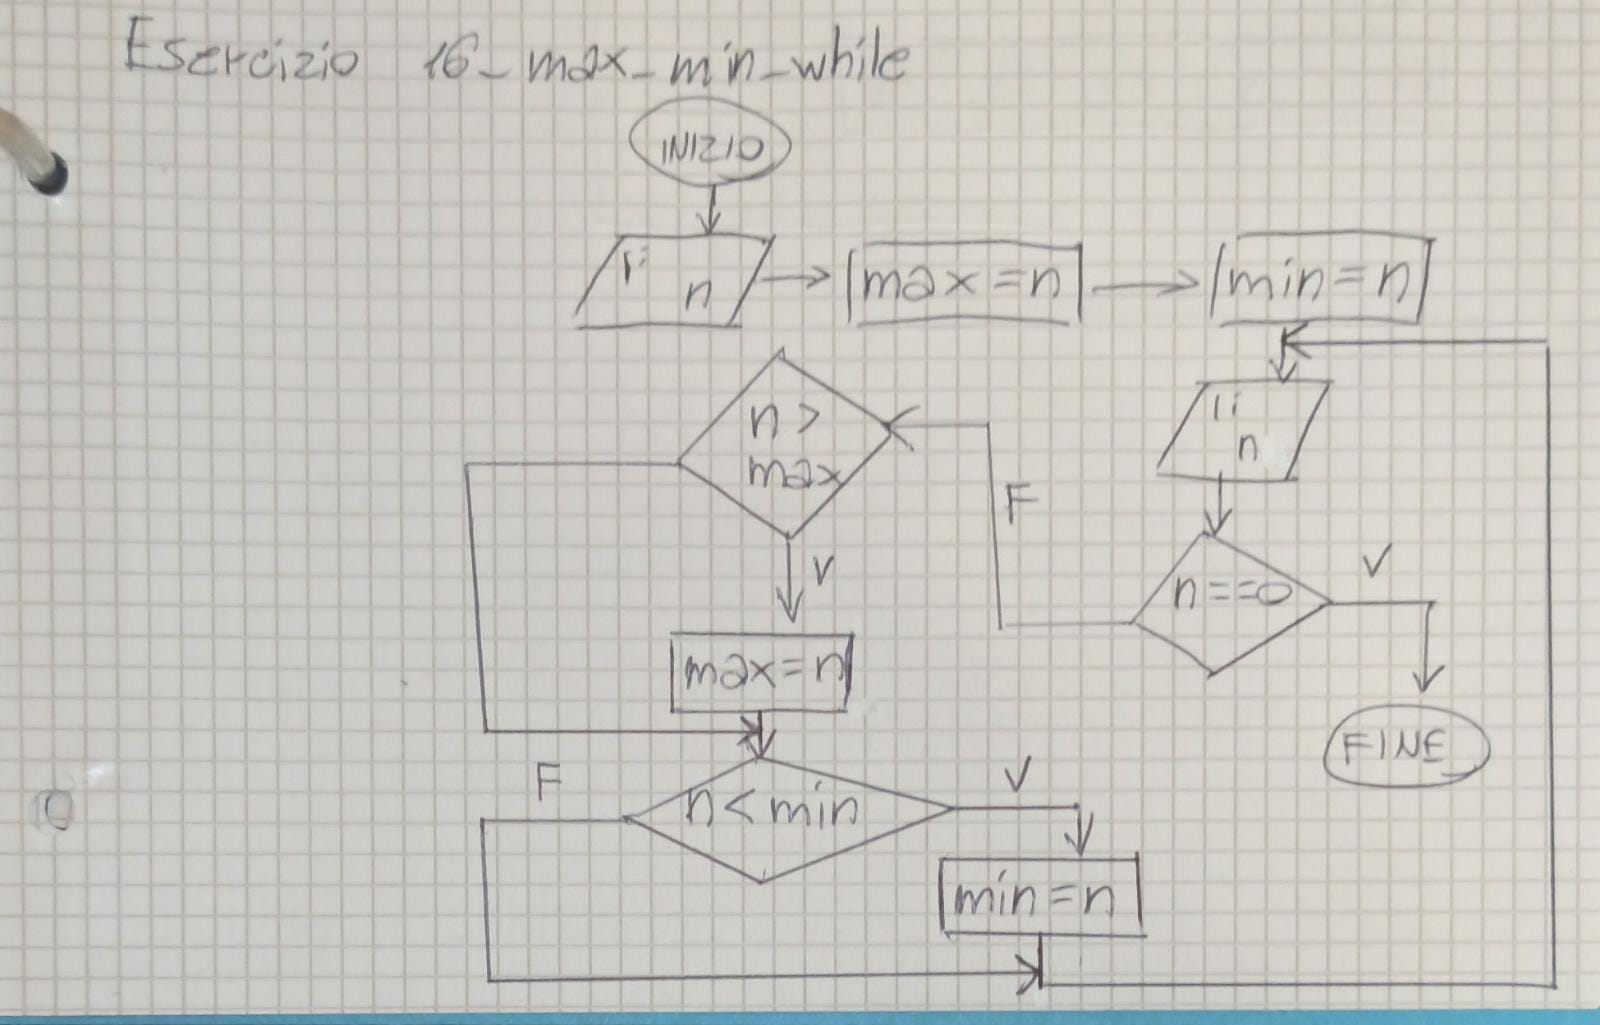 Esercizio 16_max_min_while
INIZIO
li n
max=n
min=n
li n
n==0
V
FINE
F
n>
max
V
max=n
n<min
F
V
min=n